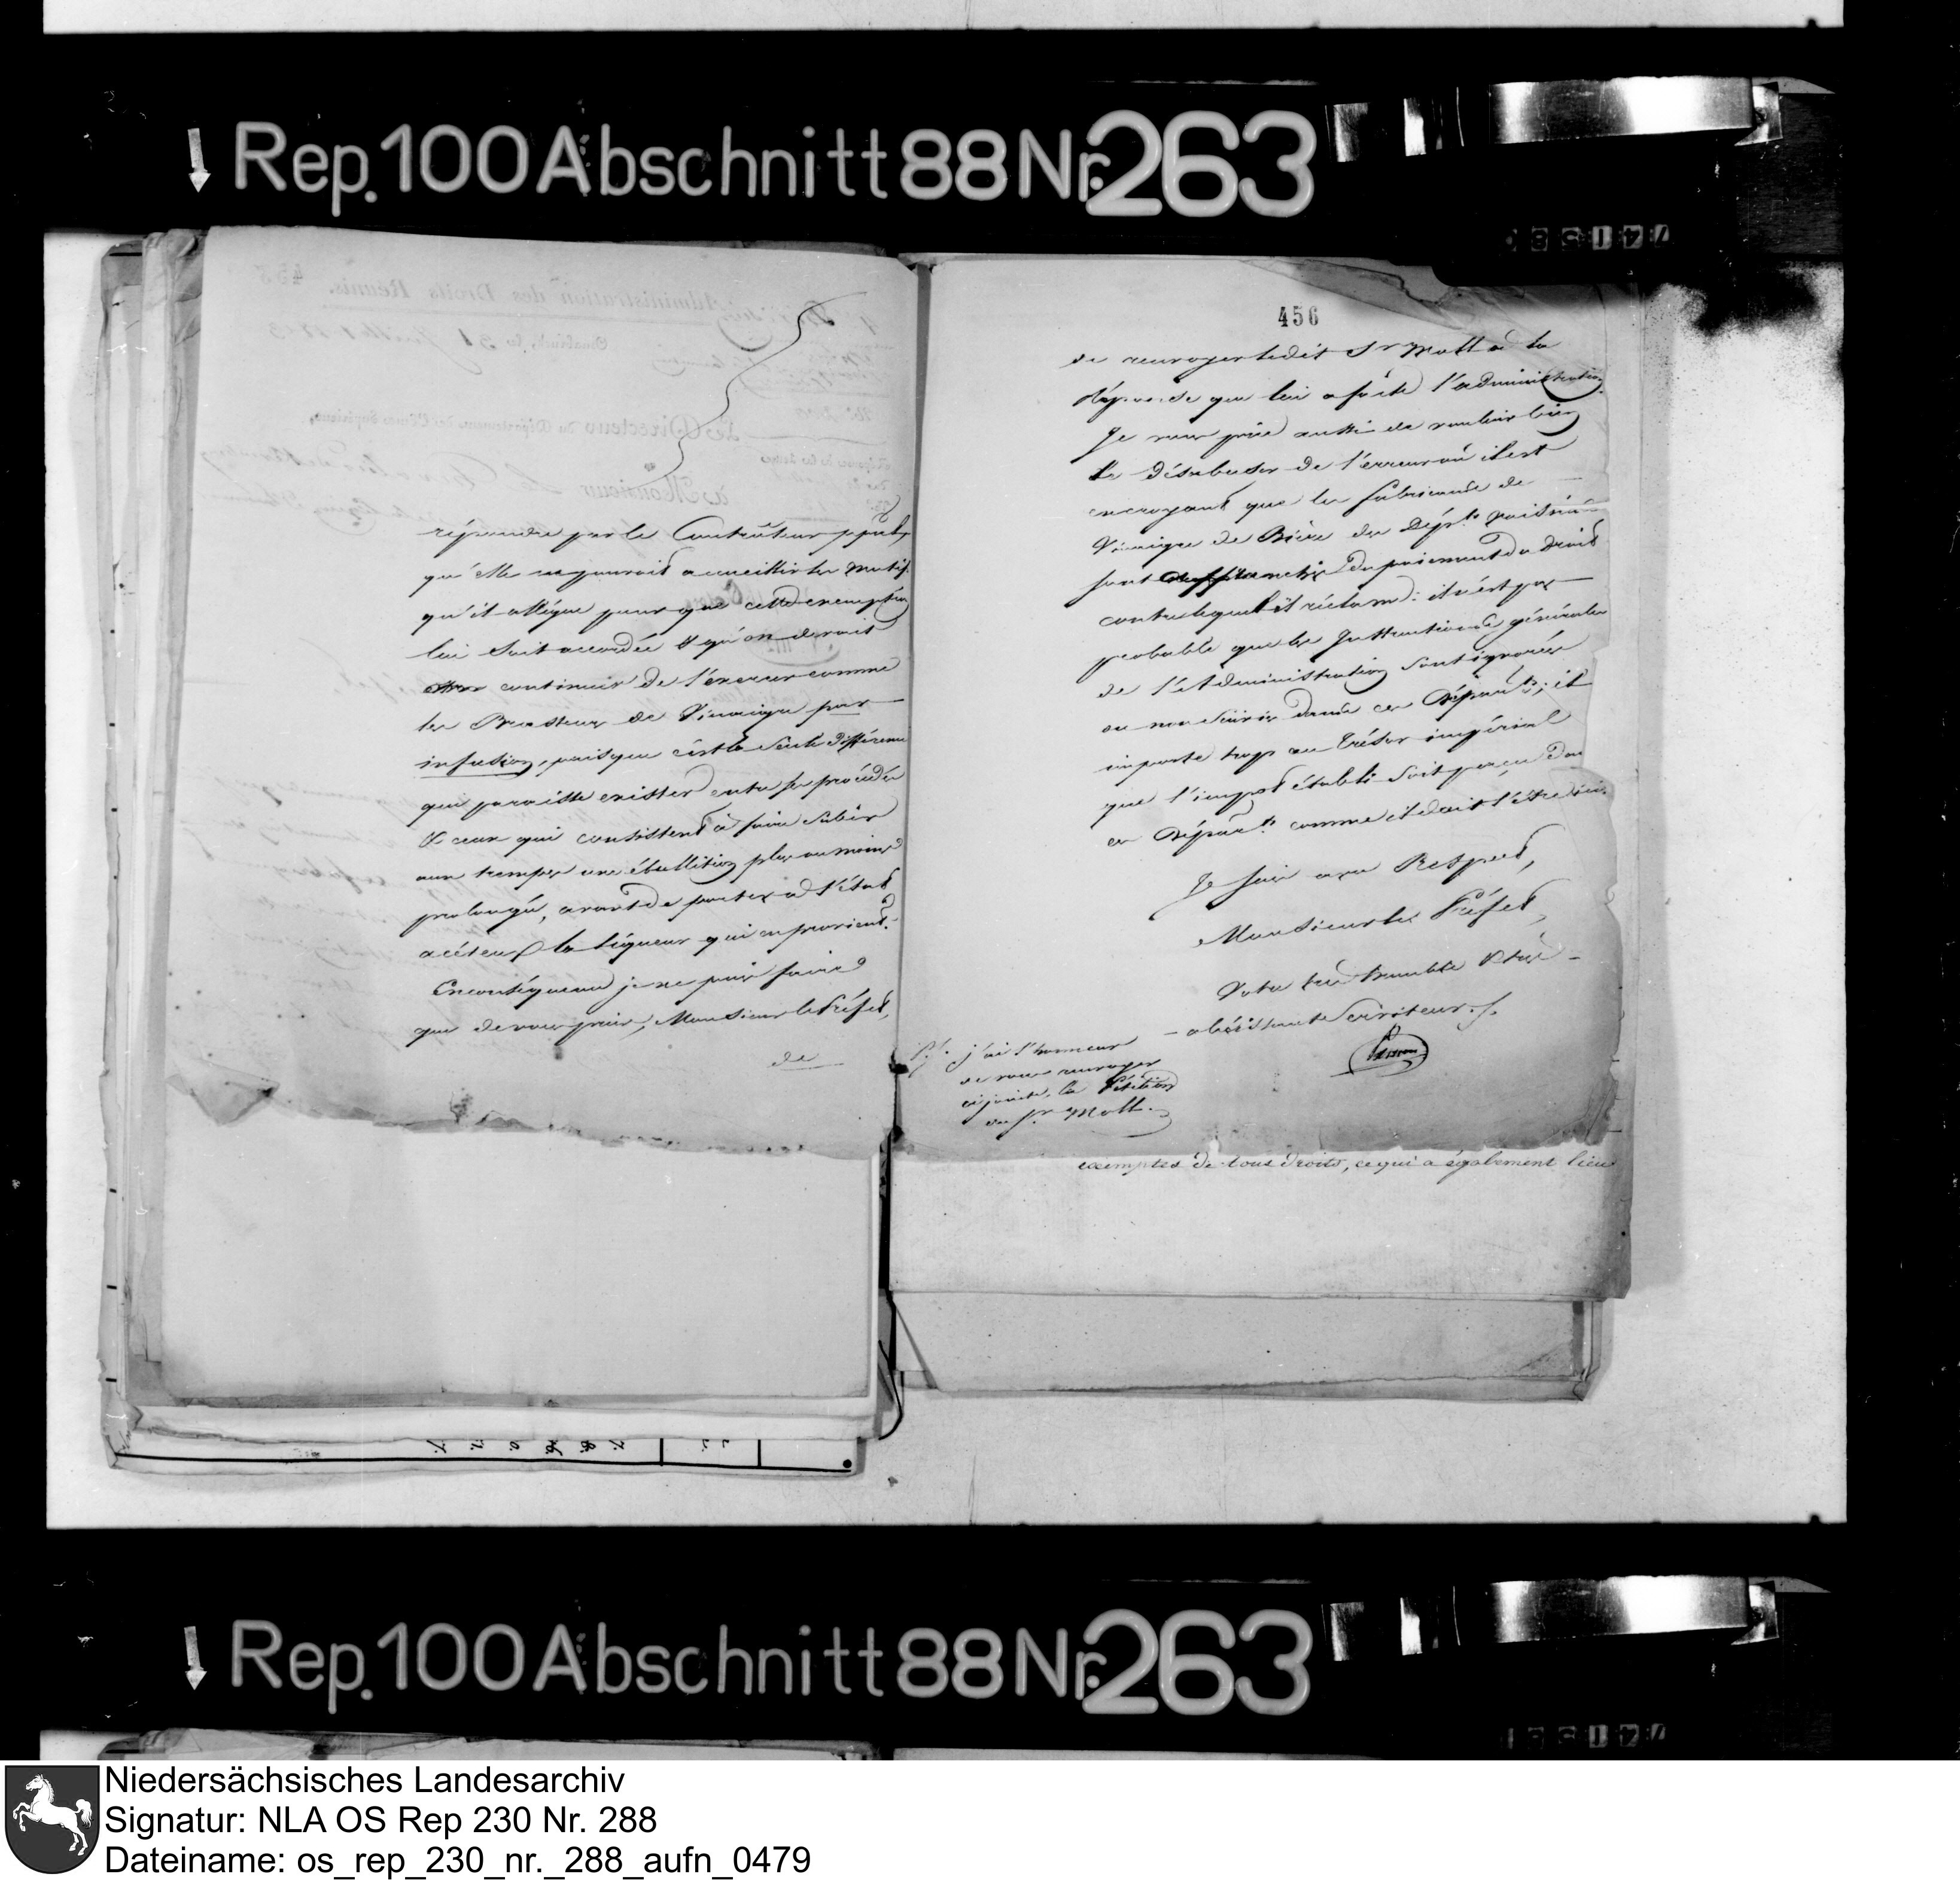 Rep. 100 Abschnitt 88 Nr. 263
répondre par le Controleur ppal,
qu'elle ne pouvait accueillir les motifs
qu'il allégue pour que cette exemption
lui soit accordée & qu'on devait
continuer de l'exercer comme
les Brasseurs de Vinaigre par
infusion, puisque c'est la seule différence
qui paraisse exister entre ses procédés
& ceux qui consistent à faire subir
aux trempes une ébullition plus ou moins
prolongée, avant de porter à l'état
acéteux la liqueur qui en provient.
En conséquence je ne puis faire
que de vous prier, Monsieur le Préfet,
de
456
de renvoyer ledit Sr Moll à la
réponse que lui a faite l'administration.
Je vous prie aussi de vouloir bien
le désabuser de l'erreur où il est
en croyant que les fabricants de
Vinaigre de Bière des Dépts. voisins
sont affranchis du paiement du droit
contre lequel il réclame: il n'est pas
probable que les Instructions générales
de l'Administration soient ignorées
ou non suivies dans ces Départs; il
importe trop au trésor impérial
que l'impot établi soit perçu dans
ces Départs. comme il doit l'être ici.
Je suis avec Respect,
Monsieur le Préfet,
Votre très humble & très
obéissant Serviteur.
P.S. j'ai l'honneur
de vous renvoyer
ci jointe, la Pétition
du Sr Moll.
exemptes de tous droits, ce qui a également lieu
Rep. 100 Abschnitt 88 Nr. 263
Niedersächsisches Landesarchiv
Signatur: NLA OS Rep 230 Nr. 288
Dateiname: os_rep_230_nr._288_aufn_0479